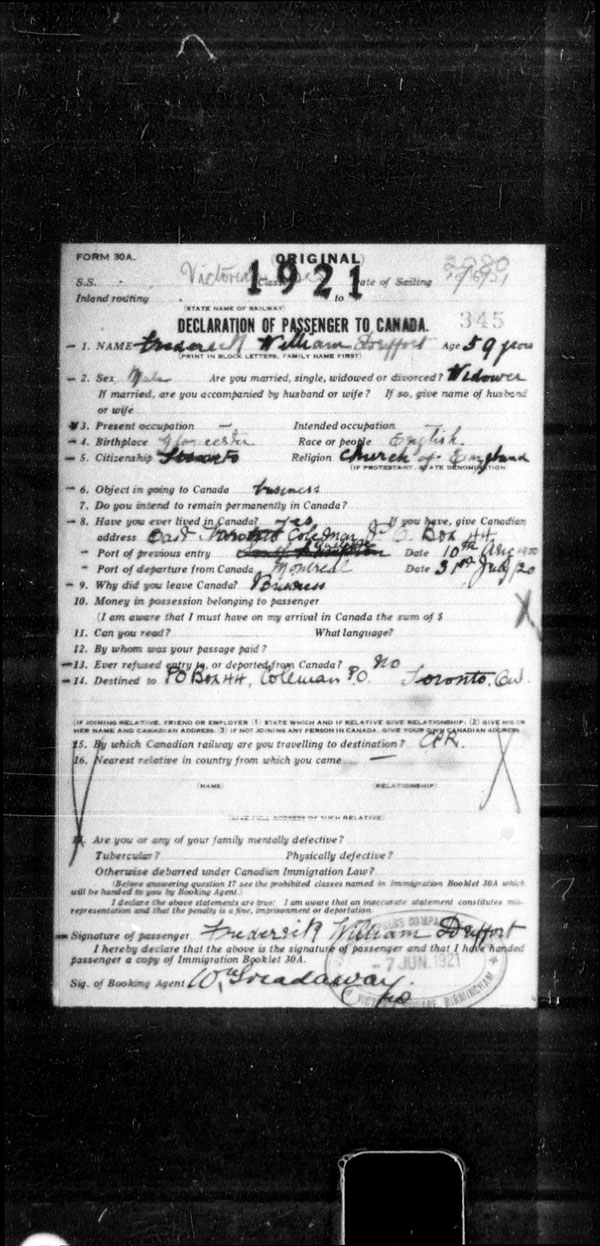 FORM 30A. (ORIGINAL)
S.S. Victorian Class Date of Sailing
1921
Inland routing to
(STATE NAME OF RAILWAY)
DECLARATION OF PASSENGER TO CANADA. 345
1. NAME Frederick William Deffort Age 59 years
(PRINT IN BLOCK LETTERS, FAMILY NAME FIRST)
2. Sex Male Are you married, single, widowed or divorced? Widower
If married, are you accompanied by husband or wife? If so, give name of husband
or wife
3. Present occupation — Intended occupation —
4. Birthplace Gloucester Race or people English.
5. Citizenship Toronto Religion Church of England
(IF PROTESTANT, STATE DENOMINATION
6. Object in going to Canada business
7. Do you intend to remain permanently in Canada?
8. Have you ever lived in Canada? yes If you have, give Canadian
address East Toronto Coleman P.O. Box 44
Port of previous entry Date 10th Aug 1900
Port of departure from Canada Montreal Date 31st July/20
9. Why did you leave Canada? Business
10. Money in possession belonging to passenger
(I am aware that I must have on my arrival in Canada the sum of $
11. Can you read? What language?
12. By whom was your passage paid?
13. Ever refused entry to, or deported from Canada? No
14. Destined to PO Box 44, Coleman P.O. Toronto. Ont.
(IF JOINING RELATIVE, FRIEND OR EMPLOYER (1) STATE WHICH AND IF RELATIVE GIVE RELATIONSHIP; (2) GIVE HIS OR
HER NAME AND CANADIAN ADDRESS (3) IF NOT JOINING ANY PERSON IN CANADA, GIVE YOUR OWN CANADIAN ADDRESS.
15. By which Canadian railway are you travelling to destination? CPR.
16. Nearest relative in country from which you came —
(NAME) (RELATIONSHIP)
(GIVE FULL ADDRESS OF SUCH RELATIVE)
17. Are you or any of your family mentally defective?
Tubercular? Physically defective?
Otherwise debarred under Canadian Immigration Law?
(Before answering question 17 see the prohibited classes named in Immigration Booklet 30A which
will be handed to you by Booking Agent.)
I declare the above statements are true: I am aware that an inaccurate statement constitutes mis-
representation and that the penalty is a fine, imprisonment or deportation.
Signature of passenger Frederick William Deffort
I hereby declare that the above is the signature of passenger and that I have handed
passenger a copy of Immigration Booklet 30A.
- 7 JUN. 1921
Sig. of Booking Agent Wm Treadaway.
VICTORIA SQUARE, BIRMINGHAM.